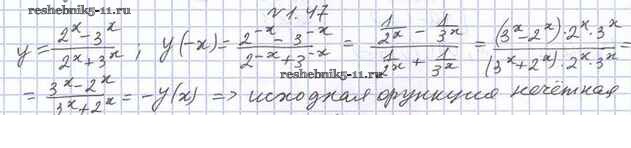 reshebnik5-11.ru
№1.47
y = (2^x - 3^x)/(2^x + 3^x); y(-x) = (2^-x - 3^-x)/(2^-x + 3^-x) = (1/2^x - 1/3^x)/(1/2^x + 1/3^x) = ((3^x - 2^x)·2^x·3^x)/((3^x + 2^x)·2^x·3^x) =
reshebnik5-11.ru
= (3^x - 2^x)/(3^x + 2^x) = -y(x) => исходная функция нечётная